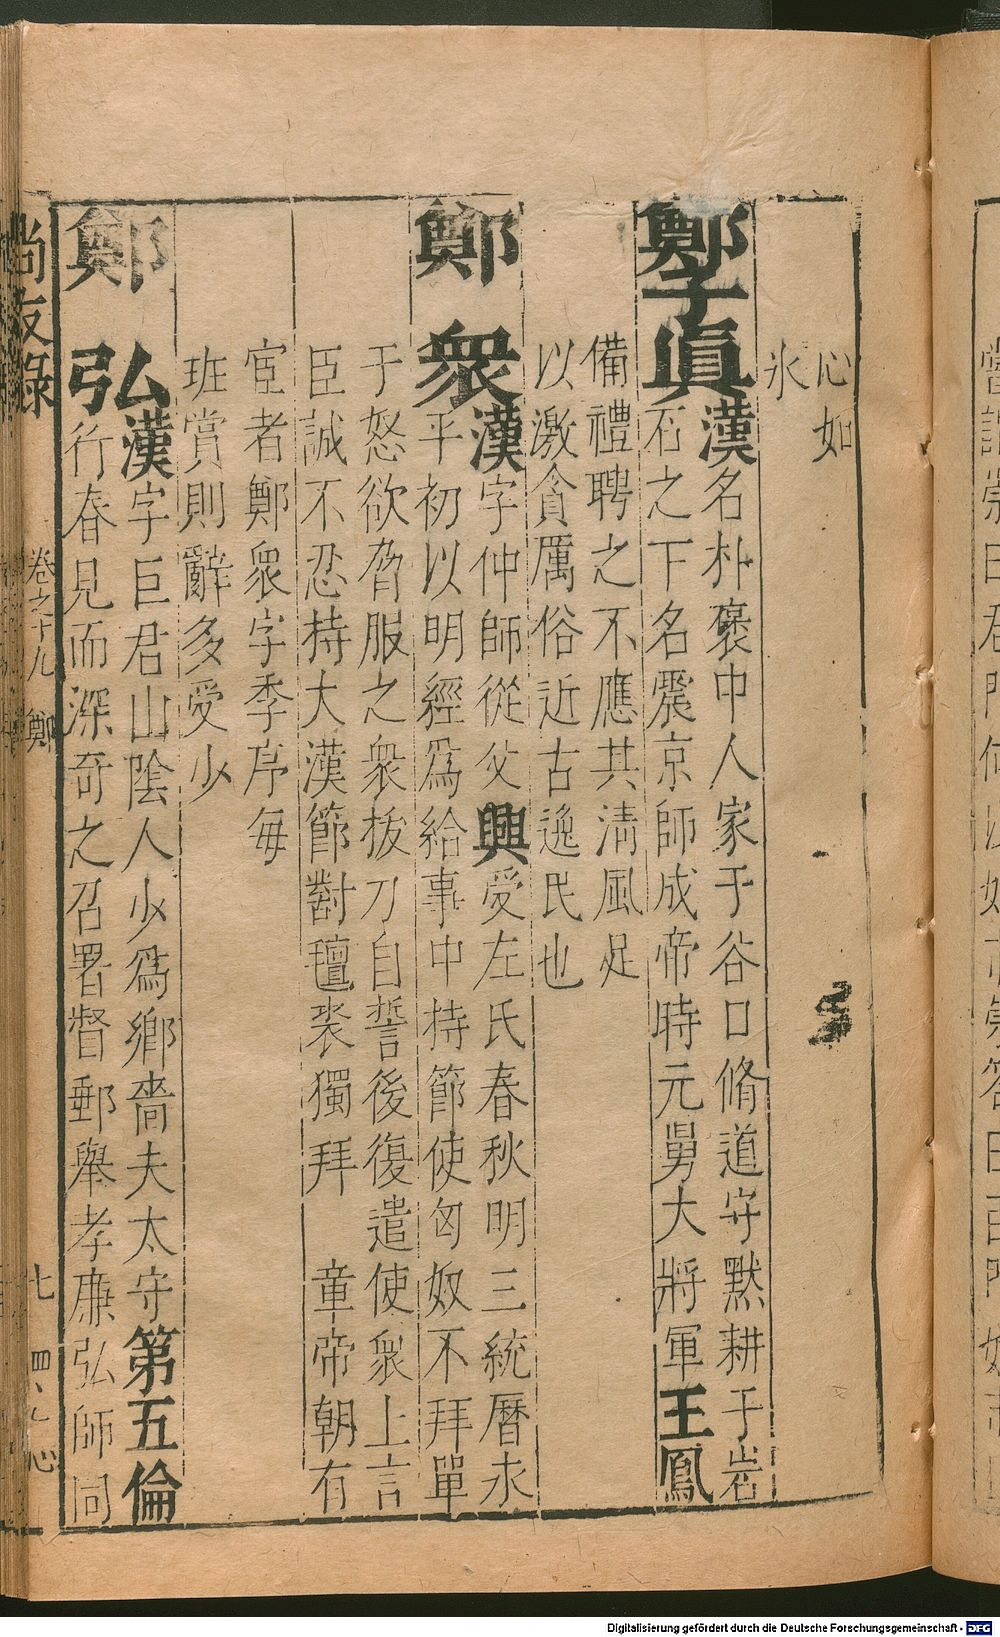 心如
水
鄭子眞漢名朴褒中人家于谷口脩道守默耕于岩
石之下名震京師成帝時元舅大將軍王鳳
備禮聘之不應其清風足
以激貪厲俗近古逸民也
鄭衆漢字仲師從父興受左氏春秋明三統曆永
平初以明經爲給事中持節使匈奴不拜單
于怒欲脅服之衆拔刀自誓後復遣使衆上言
臣誠不忍持大漢節對氊裘獨拜 章帝朝有
宦者鄭衆字季序每
班賞則辭多受少
鄭弘漢字巨君山陰人少爲鄉嗇夫太守第五倫
行春見而深奇之召署督郵舉孝廉弘師同
尚友錄 卷之十九 鄭 七
Digitalisierung gefördert durch die Deutsche Forschungsgemeinschaft - DFG